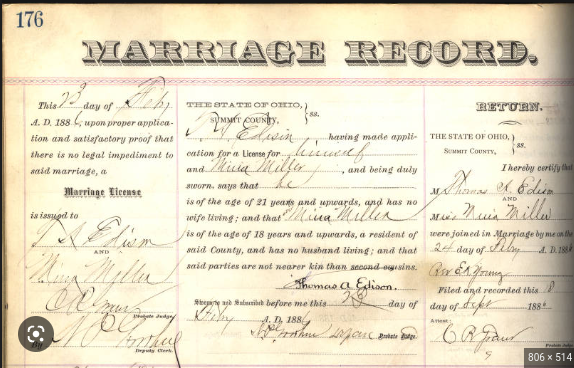 176
MARRIAGE RECORD.
This 23 day of Feby
A. D. 1886, upon proper applica-
tion and satisfactory proof that
there is no legal impediment to
said marriage, a
Marriage License
is issued to
T A Edison
AND
Mina Miller
C R Grant
Probate Judge.
By
Deputy Clerk.
THE STATE OF OHIO, } ss.
SUMMIT COUNTY,
T. A. Edison having made appli-
cation for a License for himself
and Mina Miller, and being duly
sworn, says that he
is of the age of 21 years and upwards, and has no
wife living; and that Mina Miller
is of the age of 18 years and upwards, a resident of
said County, and has no husband living; and that
said parties are not nearer kin than second cousins.
Thomas A. Edison.
Sworn to and Subscribed before me this 23 day of
Feby A. D. 1886
Probate Judge.
RETURN.
THE STATE OF OHIO, }
SUMMIT COUNTY,
I hereby certify that
M Thomas A. Edison
AND
Miss Mina Miller
were joined in Marriage by me on the
24 day of Feby A. D. 188
Rev E K Young
Filed and recorded this 8
day of Sept 188
Attest:
C R Grant
Probate Judge
806 × 514